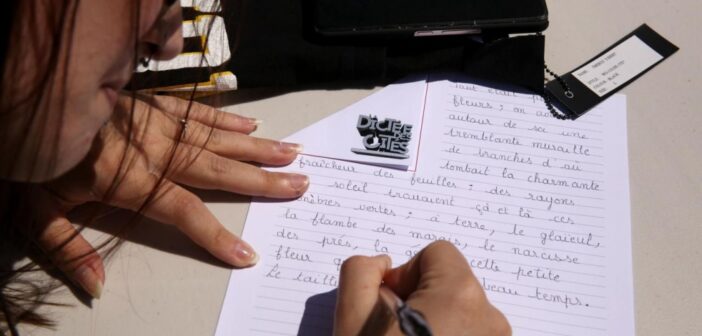 tout était p
fleurs ; on a
autour de soi une
tremblante muraille
de branches d'où
tombait la charmante
fraîcheur des feuilles : des rayons
soleil trouaient çà et là ces
vertes ; à terre, le glaïeul,
la flambe des marais, le narcisse
des prés, la cette petite
fleur beau temps.
Le
DICTÉE
DES
CITÉS